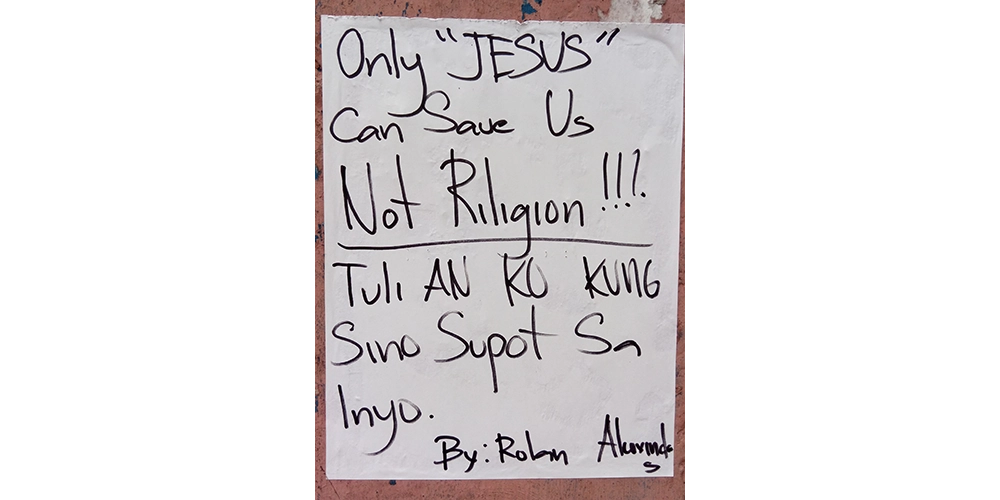 Only "JESUS"
Can Save Us
Not Riligion !!!
Tuli AN KO KUNG
Sino Supot Sa
Inyo.
By: Rolan